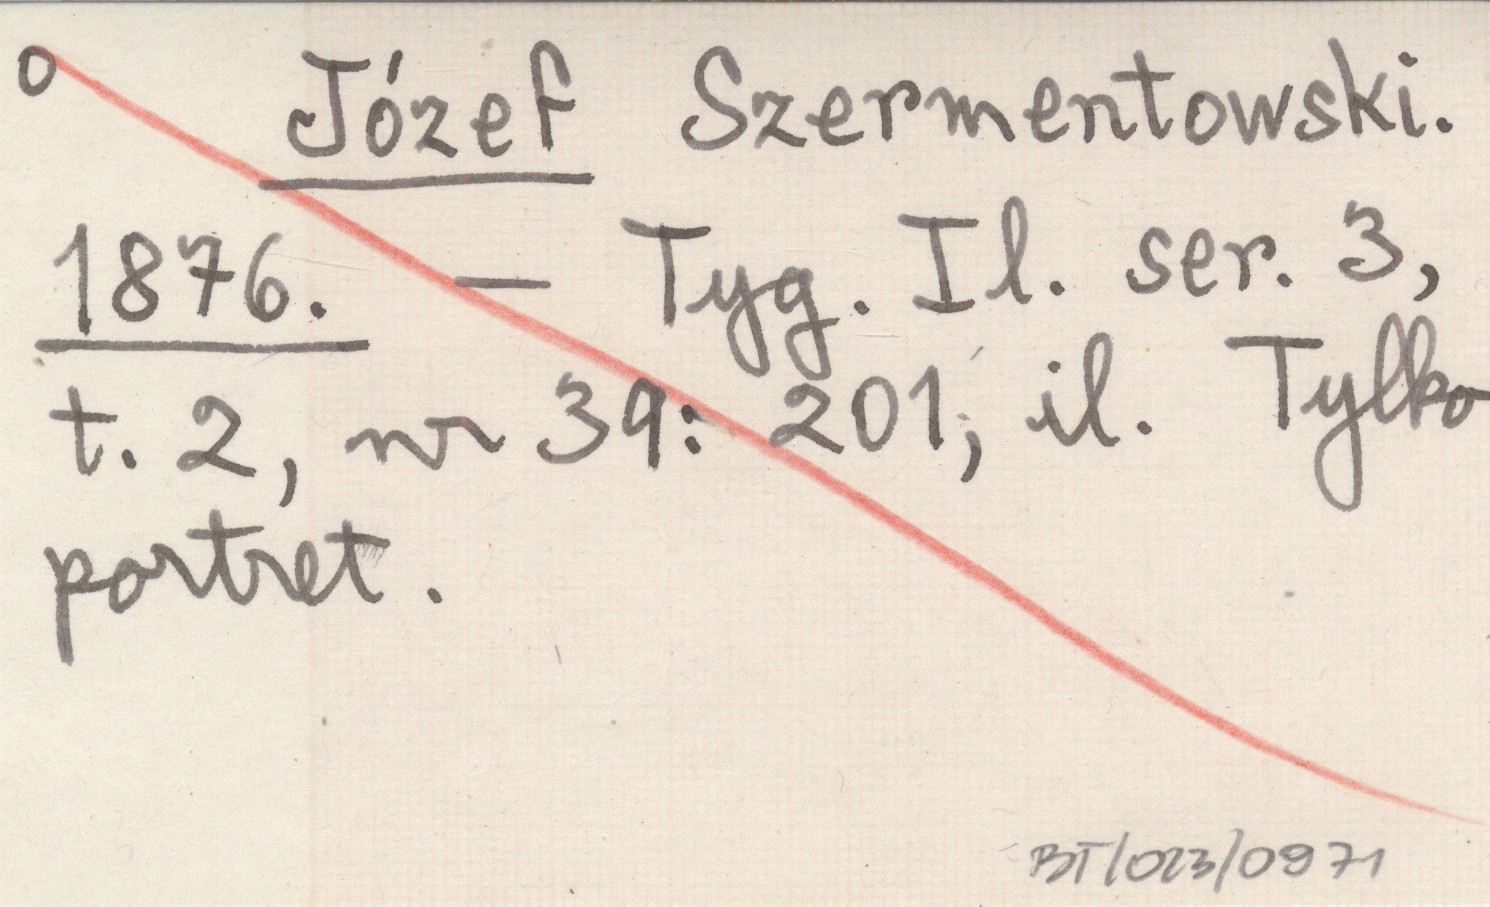 o Józef Szermentowski.
1876. — Tyg. Il. ser. 3,
t. 2, nr 39: 201, il. Tylko
portret.
BT/023/0971